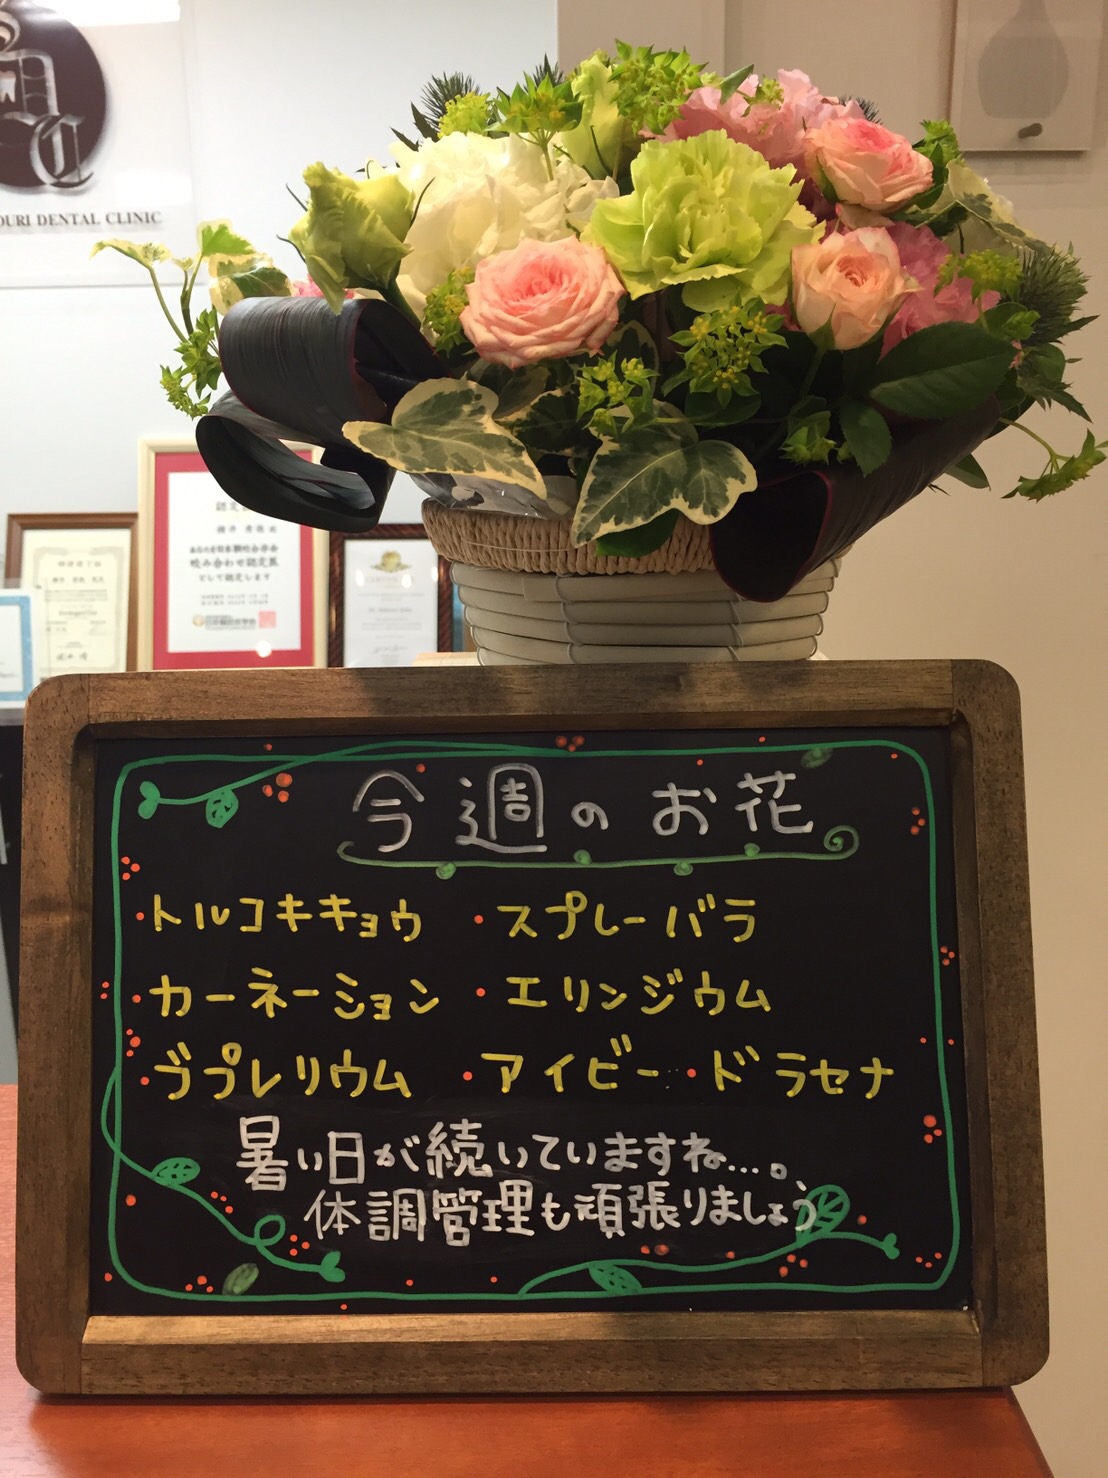 OURI DENTAL CLINIC
咬み合わせ認定医
として認定します
今週のお花
・トルコキキョウ ・スプレーバラ
・カーネーション ・エリンジウム
・ブプレリウム ・アイビー ・ドラセナ
暑い日が続いていますね…。
体調管理も頑張りましょう